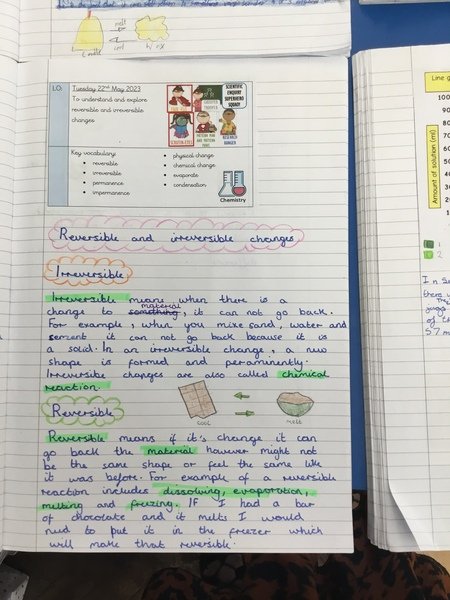 melt
cool
Candle
Wax
LO:
Tuesday 22nd May 2023
To understand and explore
reversible and irreversible
changes
SCIENTIFIC
ENQUIRY
SUPERHERO
SQUAD!
Key vocabulary:
reversible
irreversible
permanence
impermanence
physical change
chemical change
evaporate
condensation
Chemistry
Reversible and irreversible changes
Irreversible
Irreversible means when there is a
material
change to something, it can not go back.
For example, when you mixe sand, water and
sement it can not go back because it is
a solid. In an irreversible change, a new
shape is formed and peraminently.
Irreversible changes are also called chemical
reaction.
cool
melt
Reversible
Reversible means if it's change it can
go back the material however might not
be the same shape or feel the same like
it was before. For example of a reversible
reaction includes dissolving, evaporation,
melting and frezing. If I had a bar
of chocolate and it melts I would
need to put it in the freezer which
will make that reversible.
Line g
Amount of solution (ml)
100
90
80
70
1
2
In Sc
there
of th
57 m